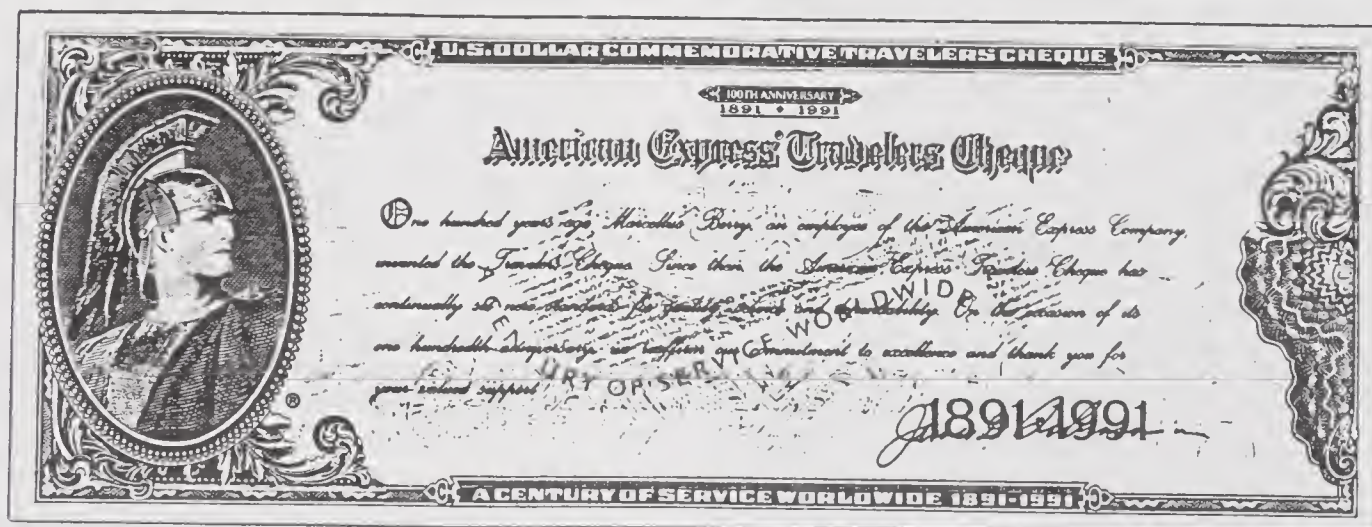 U.S. DOLLAR COMMEMORATIVE TRAVELERS CHEQUE
100TH ANNIVERSARY
1891 • 1991
American Express® Travelers Cheque
One hundred years ago Marcellus Berry, an employee of the American Express Company,
invented the Travelers Cheque. Since then, the American Express Travelers Cheque has
continually set new standards for quality, service and dependability. On the occasion of its
one hundredth anniversary we reaffirm our commitment to excellence and thank you for
your valued support.
URY OF SERVICE WORLDWIDE
®
1891-1991
A CENTURY OF SERVICE WORLDWIDE 1891-1991